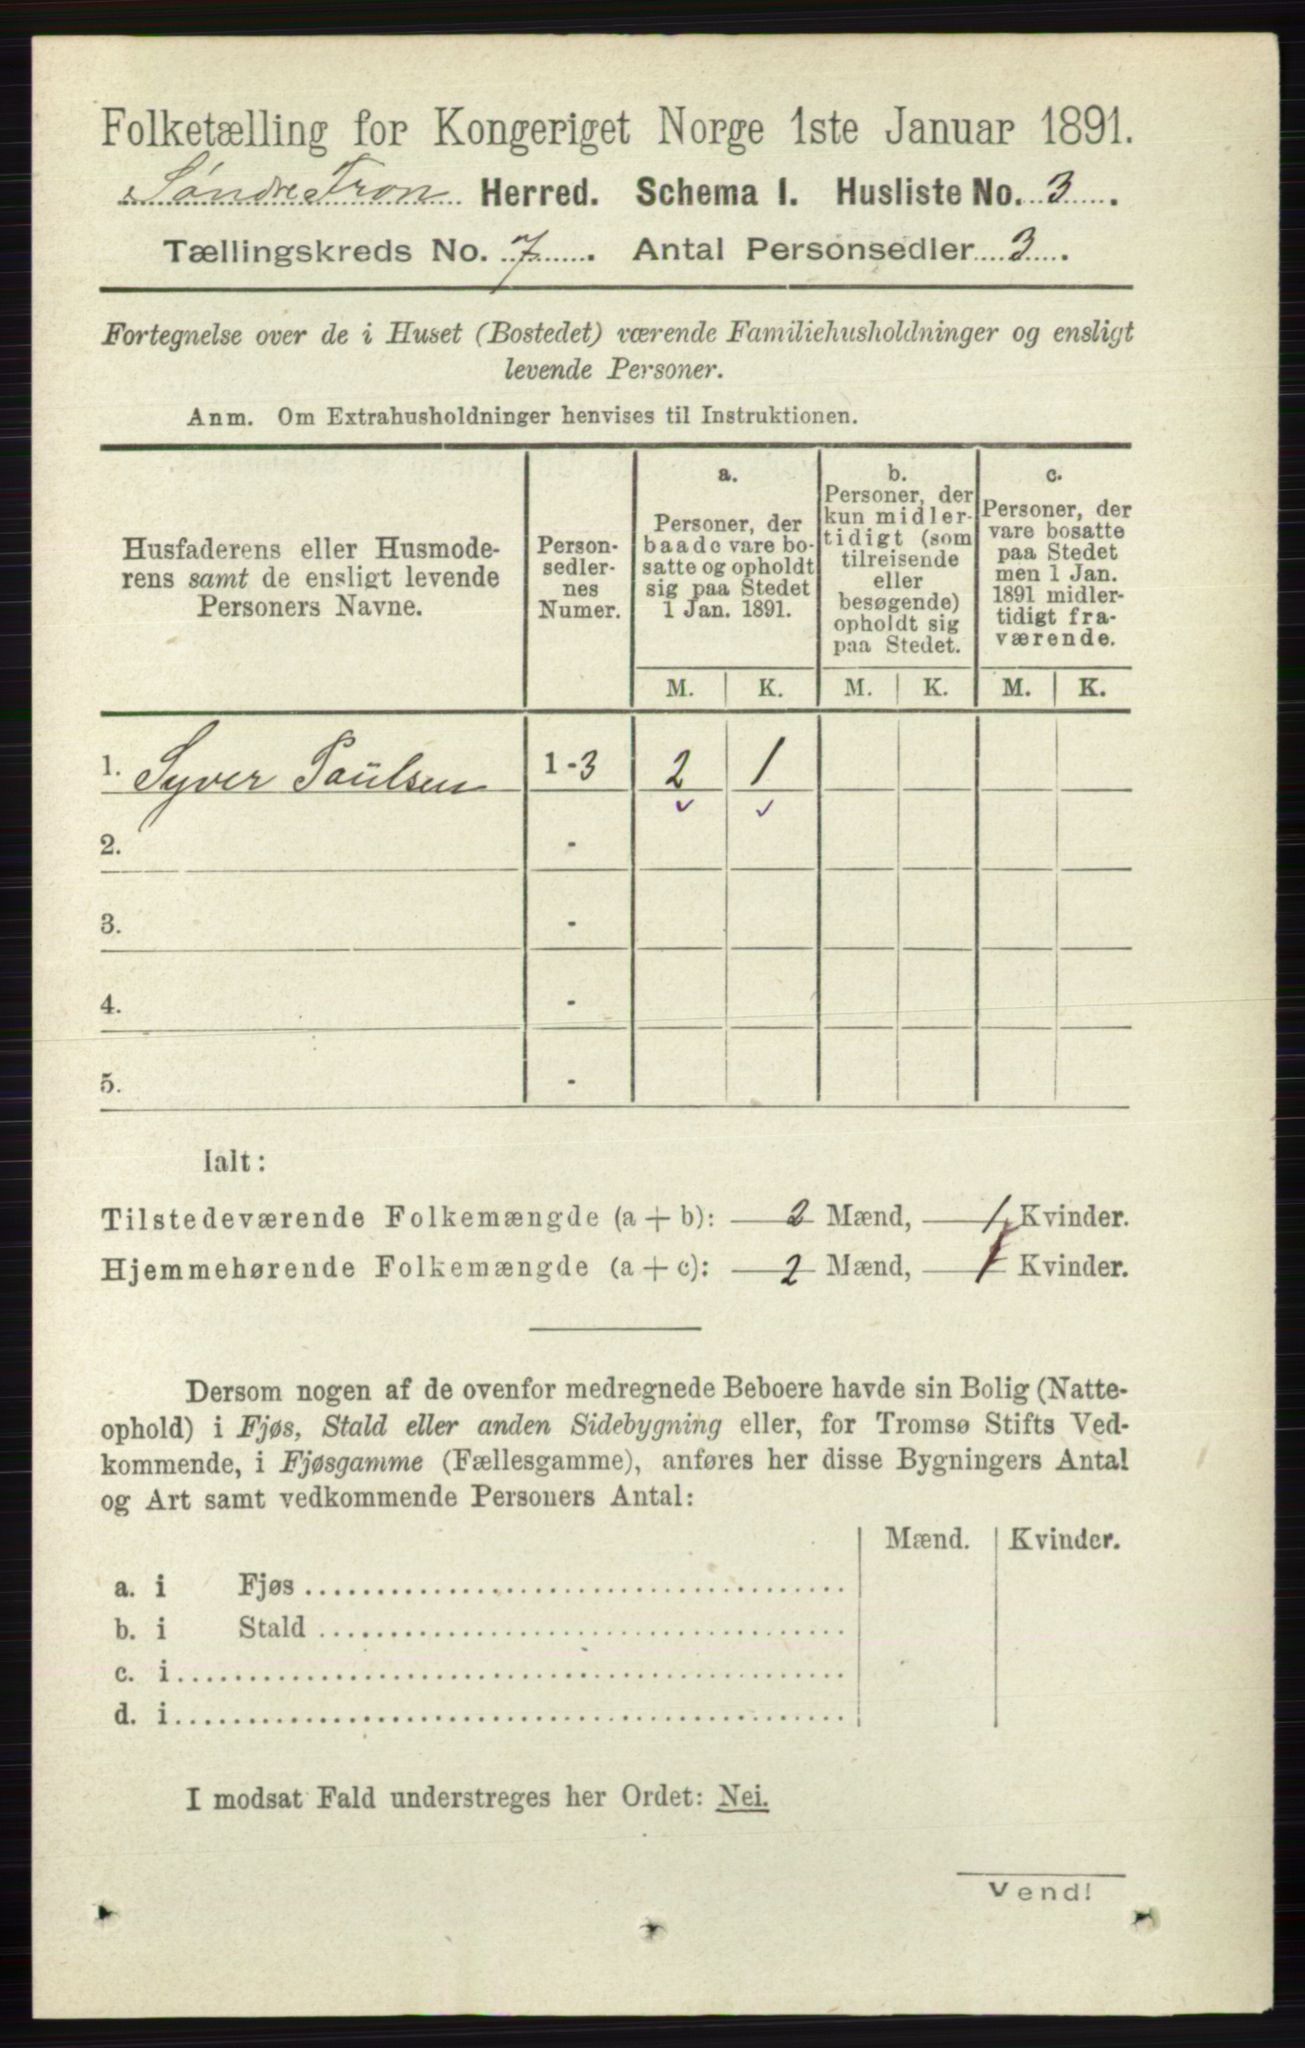 Folketælling for Kongeriget Norge 1ste Januar 1891.
Søndre Fron Herred. Schema I. Husliste No. 3.
Tællingskreds No. 7. Antal Personsedler 3.
Fortegnelse over de i Huset (Bostedet) værende Familiehusholdninger og ensligt
levende Personer.
Anm. Om Extrahusholdninger henvises til Instruktionen.
Husfaderens eller Husmode-
rens samt de ensligt levende
Personers Navne.
Person-
sedler-
nes
Numer.
a.
Personer, der
baade vare bo-
satte og opholdt
sig paa Stedet
1 Jan. 1891.
b.
Personer, der
kun midler-
tidigt (som
tilreisende
eller
besøgende)
opholdt sig
paa Stedet.
c.
Personer, der
vare bosatte
paa Stedet
men 1 Jan.
1891 midler-
tidigt fra-
værende.
M. K. M. K. M. K.
1. Syver Paulsen 1-3 2 1
2. -
3. -
4. -
5. -
Ialt:
Tilstedeværende Folkemængde (a + b): 2 Mænd, 1 Kvinder.
Hjemmehørende Folkemængde (a + c): 2 Mænd, 1 Kvinder.
Dersom nogen af de ovenfor medregnede Beboere havde sin Bolig (Natte-
ophold) i Fjøs, Stald eller anden Sidebygning eller, for Tromsø Stifts Ved-
kommende, i Fjøsgamme (Fællesgamme), anføres her disse Bygningers Antal
og Art samt vedkommende Personers Antal:
Mænd. Kvinder.
a. i Fjøs
b. i Stald
c. i
d. i
I modsat Fald understreges her Ordet: Nei.
Vend!